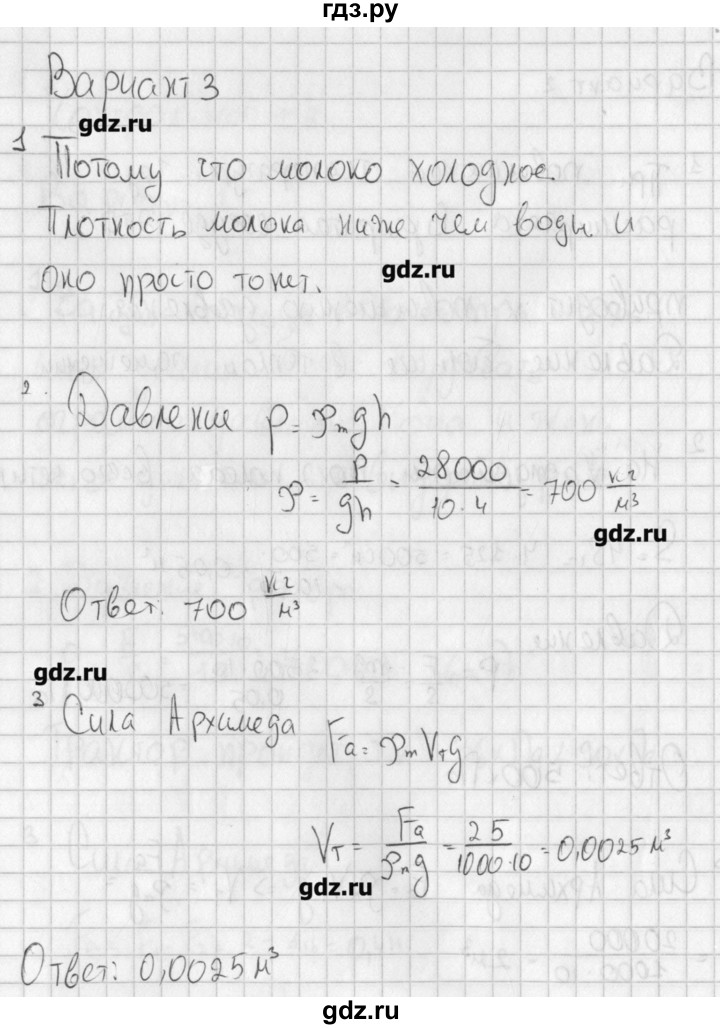 гдз.ру
Вариант 3
gdz.ru
1 Потому что молоко холодное.
Плотность молока ниже чем воды и
gdz.ru
оно просто тонет.
2. Давление p = ρₘgh
ρ = p/gh = 28000/10·4 = 700 кг/м³
gdz.ru
Ответ: 700 кг/м³
gdz.ru
3 Сила Архимеда Fa = ρₘVтg
Vт = Fa/ρₙg = 25/1000·10 = 0,0025 м³
gdz.ru
Ответ: 0,0025 м³
gdz.ru